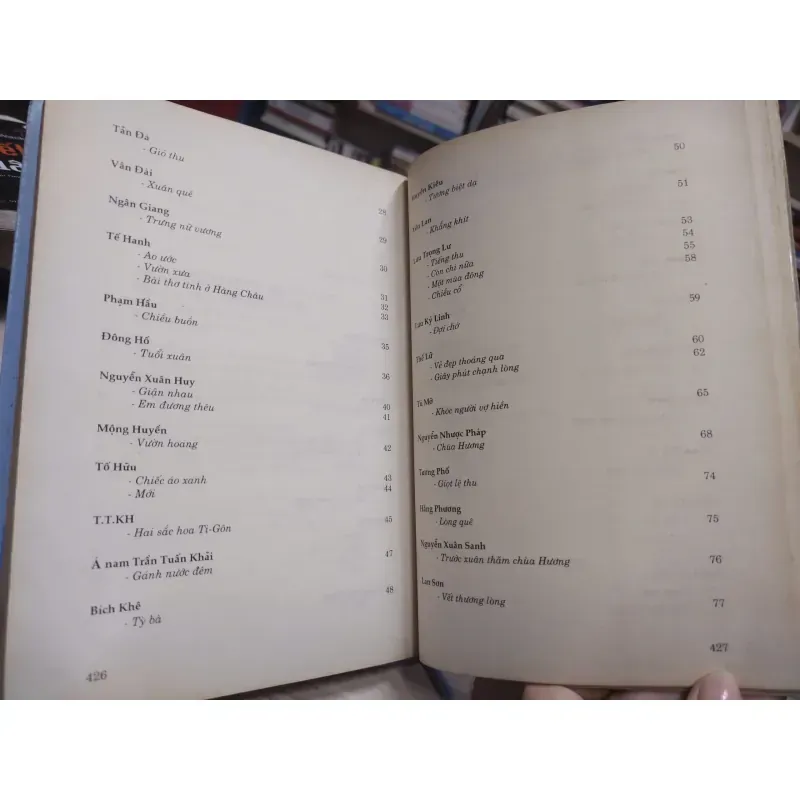 Tản Đà
- Gió thu
Vân Đài
- Xuân quê
28
Ngân Giang
- Trưng nữ vương
29
Tế Hanh
- Ao ước
30
- Vườn xưa
- Bài thơ tình ở Hàng Châu
31
32
Phạm Hầu
- Chiều buồn
33
Đông Hồ
- Tuổi xuân
35
Nguyễn Xuân Huy
36
- Giận nhau
- Em đương thêu
40
41
Mộng Huyền
- Vườn hoang
42
Tố Hữu
- Chiếc áo xanh
43
- Mới
44
T.T.KH
- Hai sắc hoa Ti-Gôn
45
Á nam Trần Tuấn Khải
- Gánh nước đêm
47
Bích Khê
- Tỳ bà
48
426
50
Kiêu
- Tương biệt dạ
51
Lan
- Khẳng khít
53
54
Trọng Lư
- Tiếng thu
55
- Còn chi nữa
58
- Một mùa đông
- Chiều cổ
Kỳ Linh
- Đợi chờ
59
Thế Lữ
60
- Vẻ đẹp thoáng qua
62
- Giây phút chạnh lòng
Tú Mỡ
- Khóc người vợ hiền
65
Nguyễn Nhược Pháp
- Chùa Hương
68
Tương Phố
- Giọt lệ thu
74
Hằng Phương
- Lòng quê
75
Nguyễn Xuân Sanh
- Trước xuân thăm chùa Hương
76
Lan Sơn
- Vết thương lòng
77
427